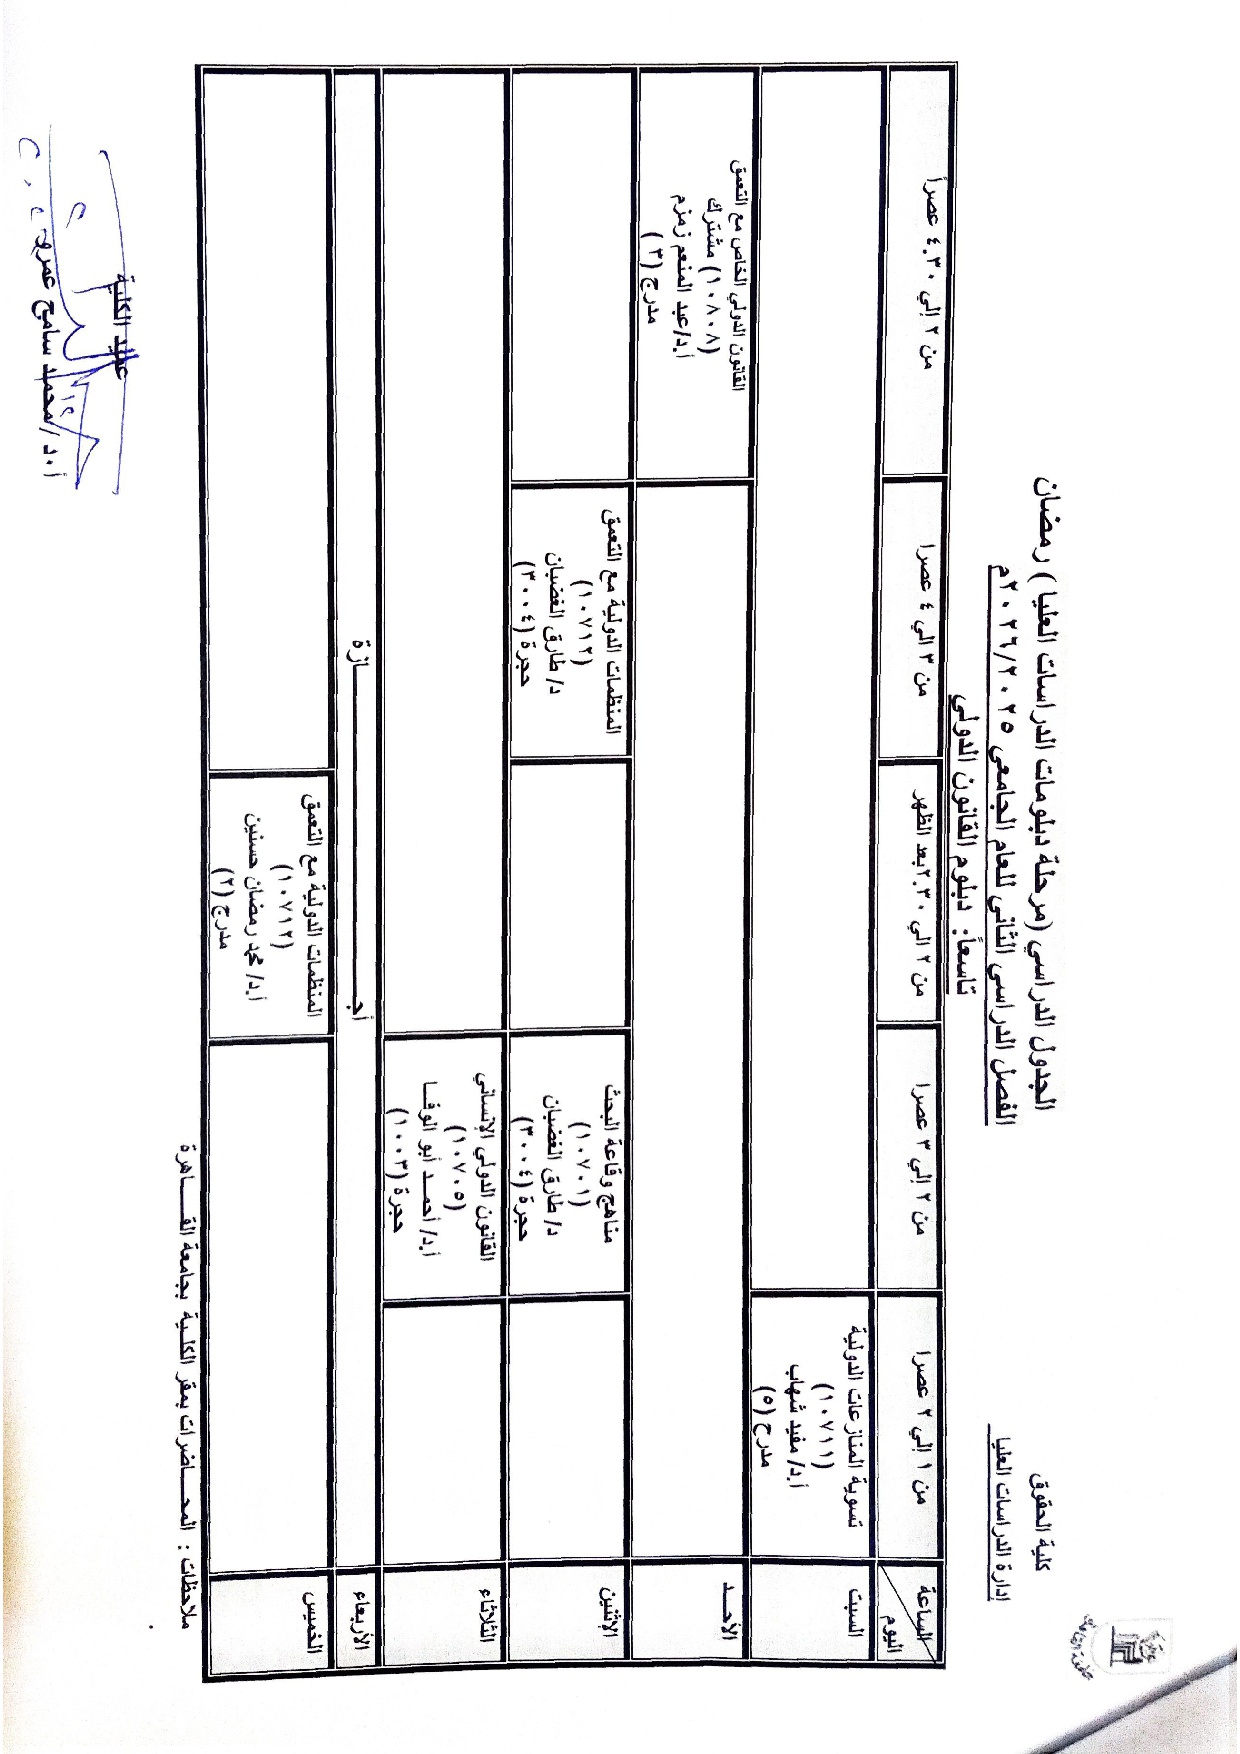 كلية الحقوق
إدارة الدراسات العليا
الجدول الدراسي (مرحلة دبلومات الدراسات العليا) رمضان
الفصل الدراسي الثاني للعام الجامعي ٢٠٢٦/٢٠٢٥م
تاسعاً: دبلوم القانون الدولي
الساعة
اليوم
من ١ إلي ٢ عصرا
من ٢ إلي ٣ عصرا
من ٢ الي ٢.٣٠ بعد الظهر
من ٣ الي ٤ عصرا
من ٢ إلي ٤.٣٠ عصراً
السبت
تسوية المنازعات الدولية
(١٠٧١١)
أ.د/ مفيد شهاب
مدرج (٥)
الأحــد
القانون الدولي الخاص مع التعمق
(١٠٨٠٨) مشترك
أ.د/عبد المنعم زمزم
مدرج (٣)
الإثنين
مناهج وقاعة البحث
(١٠٧٠١)
د/ طارق الغضبان
حجرة (٣٠٠٤)
المنظمات الدولية مع التعمق
(١٠٧١٢)
د/ طارق الغضبان
حجرة (٣٠٠٤)
الثلاثاء
القانون الدولي الإنساني
(١٠٧٠٥)
أ.د/ أحمـد أبو الوفـا
حجرة (١٠٠٣)
الأربعاء
أجــــــــازة
الخميس
المنظمات الدولية مع التعمق
(١٠٧١٢)
أ.د/ محمد رمضان حسنين
مدرج (٢)
ملاحظات : المحــاضرات بمقر الكلـية بجامعة القــاهرة
عميد الكلية
أ.د/محمد سامح عمرو